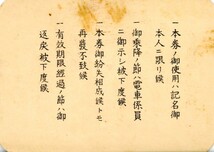 一本券ノ御使用ハ記名御
本人ニ限リ候
一御乘降ノ節ハ電車係員
ニ御示シ被下度候
一本券御紛失相成候トモ
再發不致候
一有效期限經過ノ節ハ御
返戾被下度候